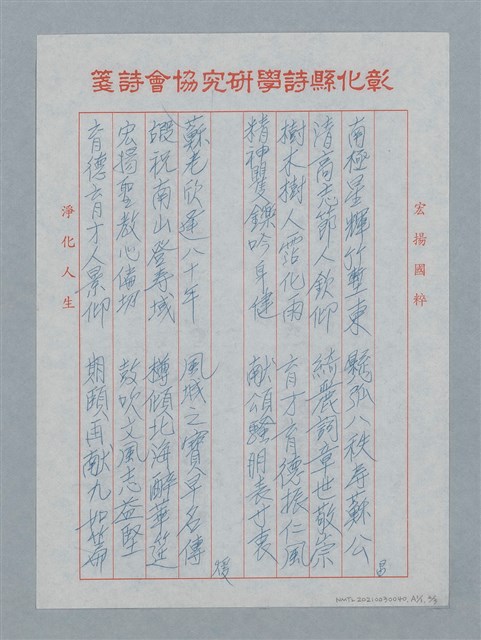 彰化縣詩學研究協會詩箋
宏揚國粹
南極星輝竹塹東 懸弧八秩壽蘇公
清高志節人欽仰 綺麗詞章世敬崇
樹木樹人霑化雨 育才育德振仁風
精神矍鑠吟身健 献頌騷朋表寸衷
蘇老欣逢八十年 風城之寶早名傳
嘏祝南山登壽域 樽傾北海醉華筵
宏揚聖教心僃切 鼓吹文風志益堅
育德育才人景仰 期頤再献九如篇
淨化人生
NMTL20210030040,